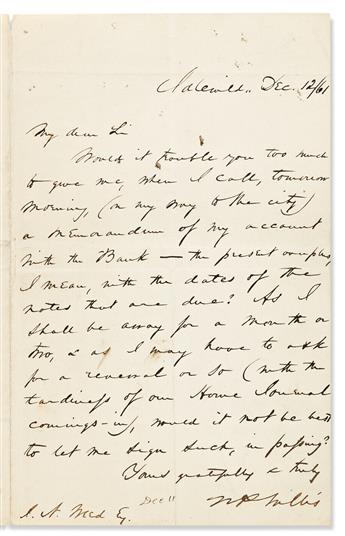 Idlewild, Dec. 12/61
My dear Sir
Would it trouble you too much
to give me, when I call, tomorrow
morning, (on my way to the city)
a memorandum of my account
with the Bank — the present
I mean, with the dates of the
notes that are due? As I
shall be away for a month or
two, & as I may have to ask
for a renewal or so (with the
tardiness of our Home Journal
comings-in), would it not be best
to let me sign such, in passing?
Yours gratefully & truly
N P Willis
Dec 11